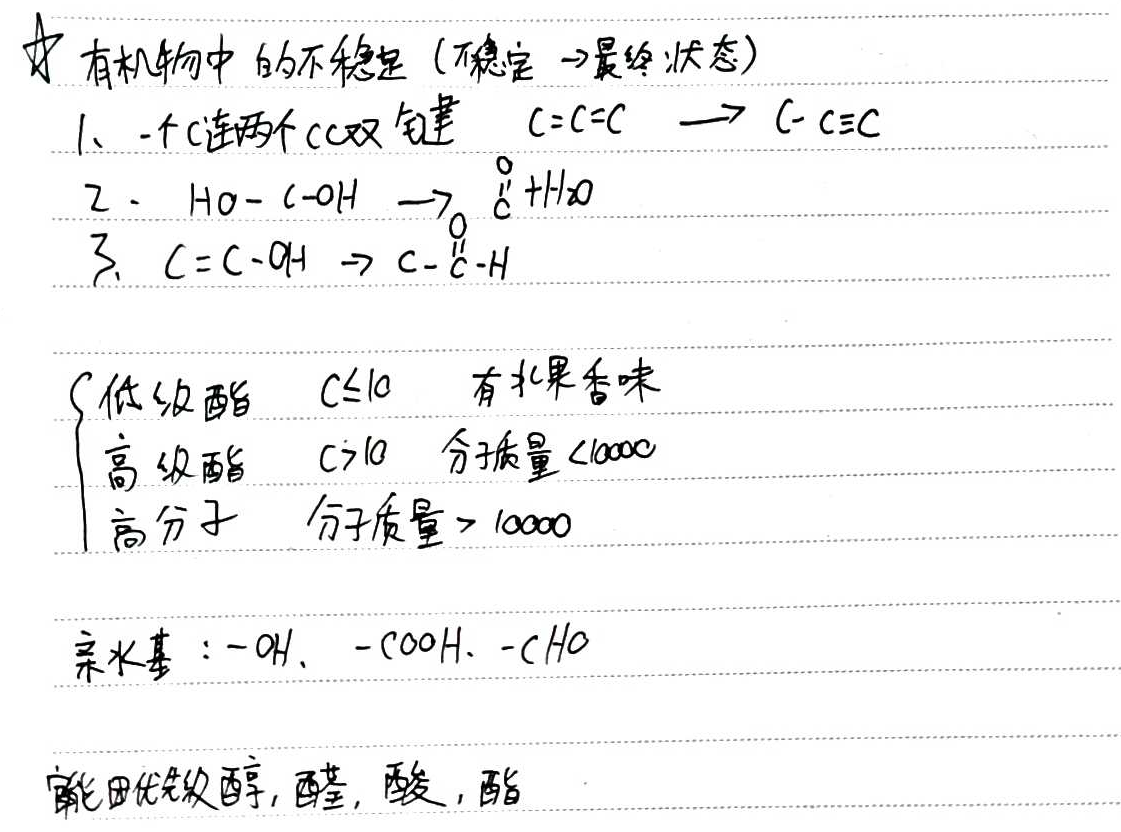 ☆ 有机物中的不稳定 (不稳定 → 最终状态)
1、一个C连两个CC双键 C=C=C → C-C≡C
2. HO-C-OH → C(=O) + H₂O
3. C=C-OH → C-C(=O)-H
低级酯 C≤10 有水果香味
高级酯 C>10 分子质量<10000
高分子 分子质量>10000
亲水基:-OH、-COOH、-CHO
官能团优先级 醇,醛,酸,酯